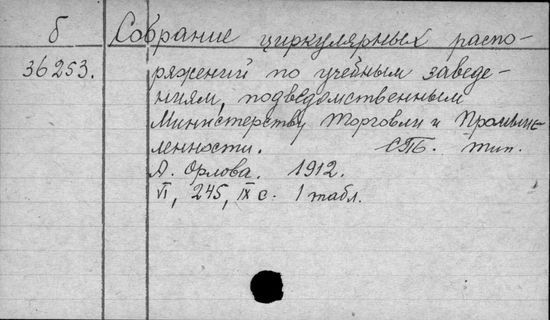 б Собрание циркулярных распо-
36253. ряжений по учебным заведе-
ниям, подведомственным
Министерству Торговли и Промыш-
ленности. СПб. тип.
А. Орлова. 1912.
VI, 245, IX с. 1 табл.